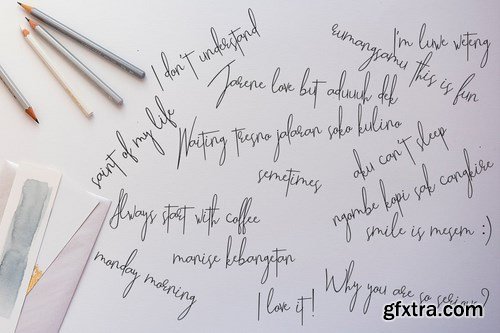 I don't understand
eumangsamu this is fun
I'm luwe weteng
Jarene love but aduuuh dek
saint of my life
Waiting tresno jalaran soko kulino
aku can't sleep
sometimes
ngombe kopi sak cangkire
Always start with coffee
smile is mesem :)
monday morning
manise kebangetan
I love it!
Why you are so serious?
gfxtra.com